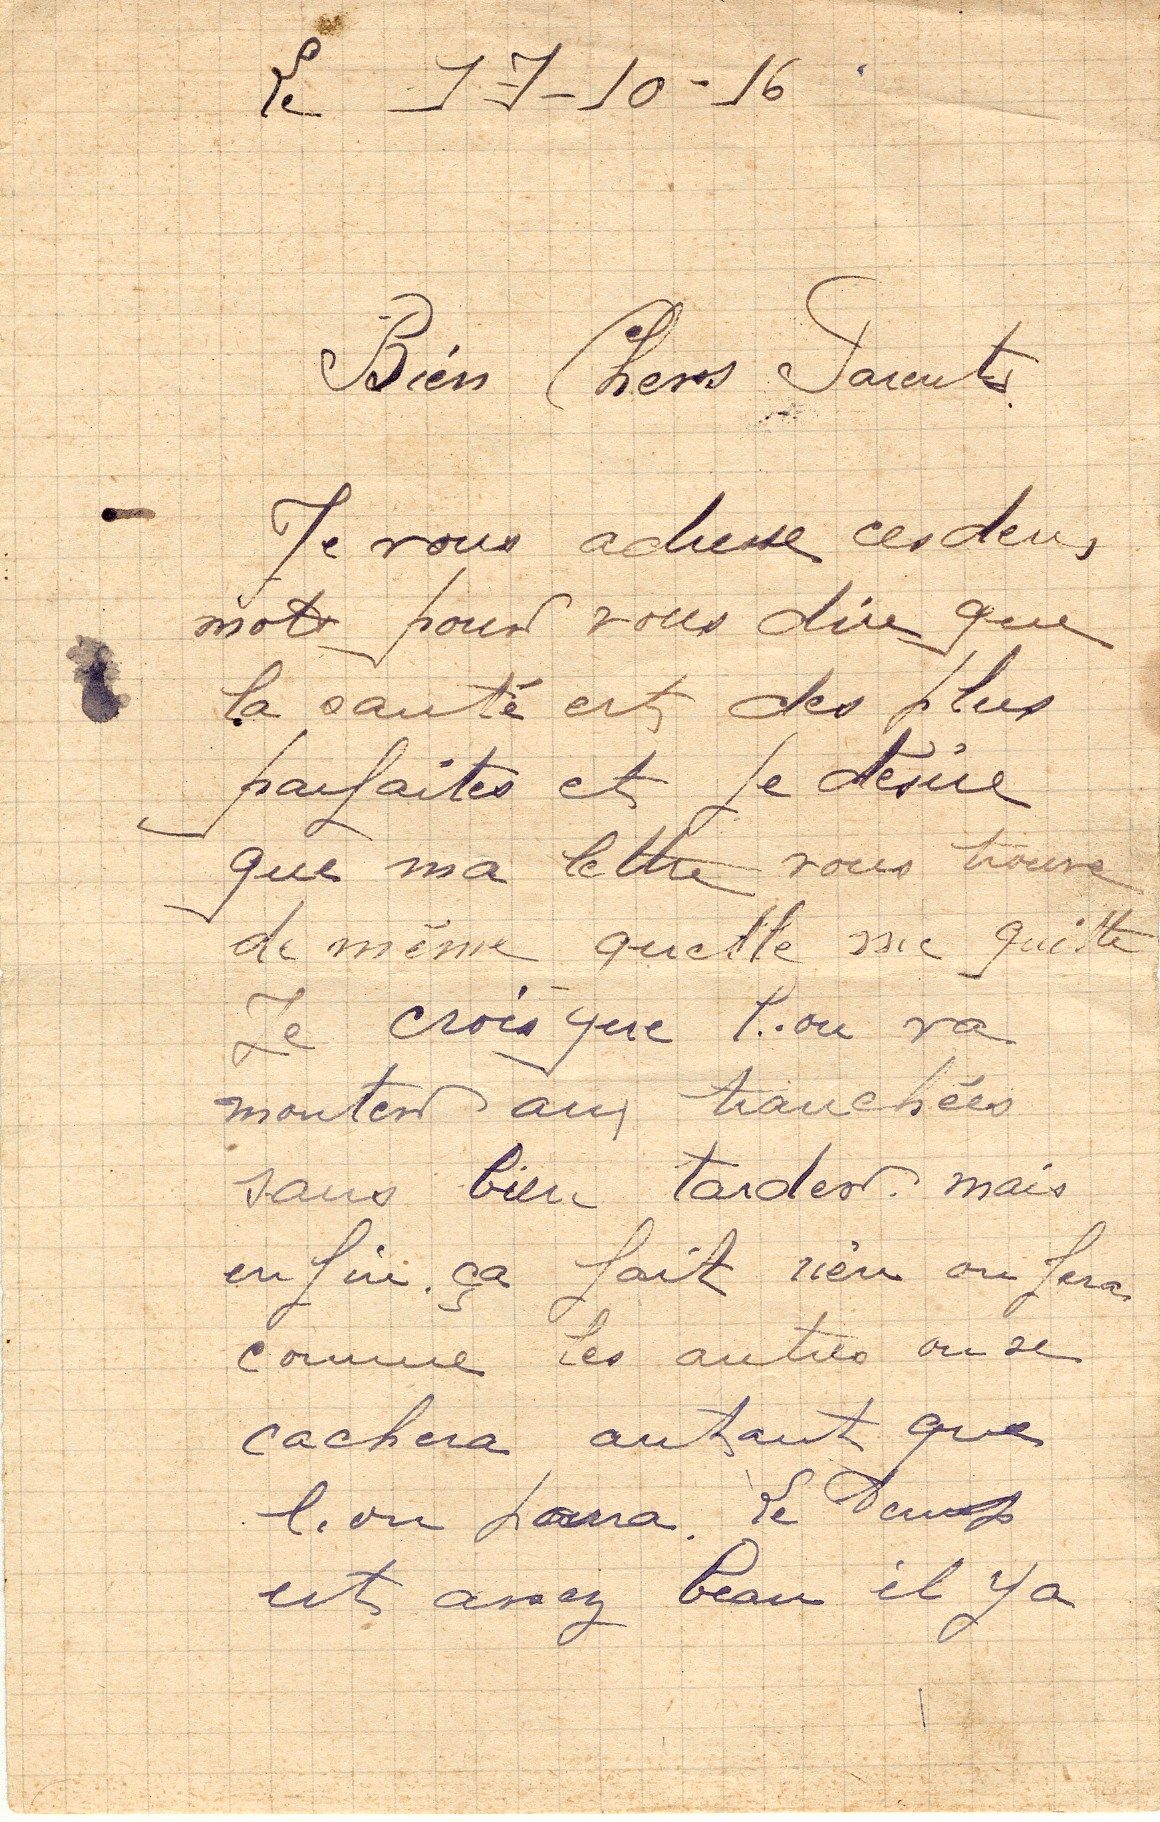 Le 17-10-16
Bien Chers Parents.
Je vous adresse ces deux
mots pour vous dire que
la santé est des plus
parfaites et je désire
que ma lettre vous trouve
de même quelle me quitte
Je crois que l'on va
monter aux tranchées
sans bien tarder. mais
enfin. ça fait rien on fera
comme les autres on se
cachera autant que
l'on poura. Le temps
est assez beau il y a